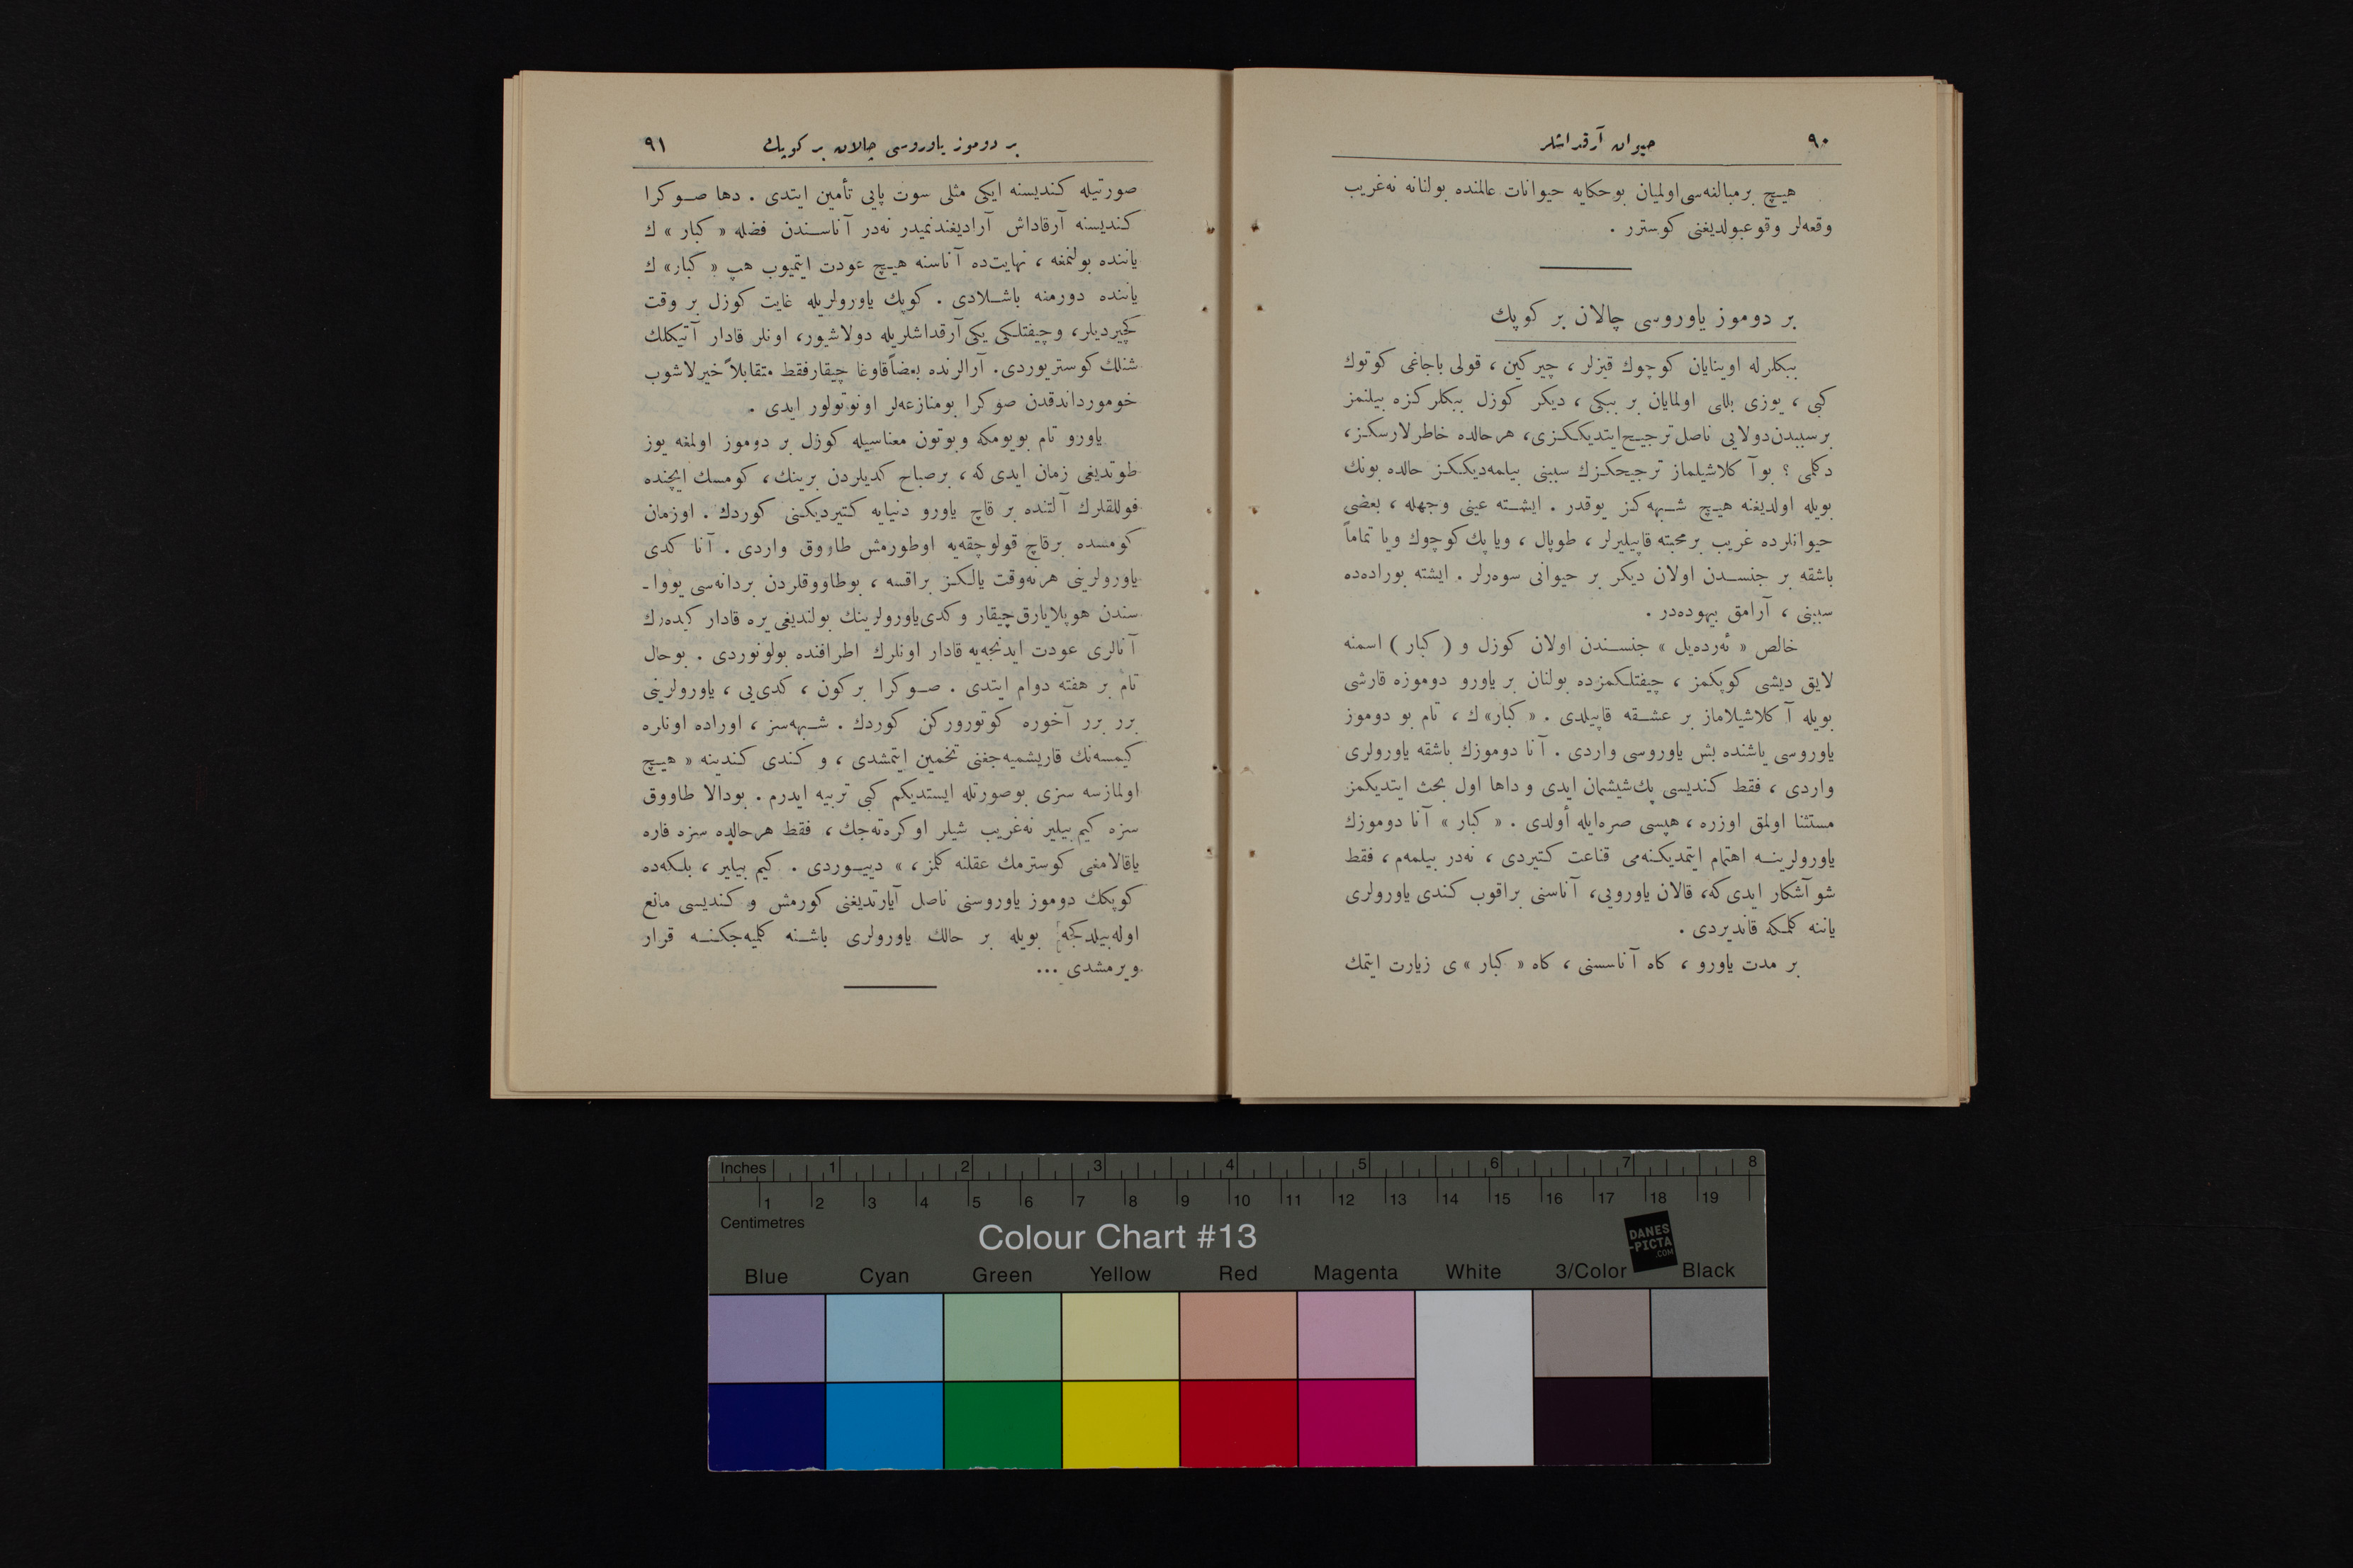 ٩٠
حیوان آرقداشلر
هیچ برمبالغه‌سی اولمیان بوحکایه حیوانات عالمنده بولنانه نه‌غریب
وقعه‌لر وقوعبولدیغنی کوسترر .
بر دوموز یاوروسی چالان بر کوپك
ببكلرله اوینایان کوچوك قیزلر ، چیرکین ، قولی باجاغی کوتوك
کبی ، یوزی بللی اولمایان بر ببکی ، دیکر کوزل ببکلرکزه بیلنمز
برسببدن‌دولایی ناصل ترجیح‌ایتدیککزی، هرحالده خاطرلارسکز،
دکلمی ؟ بوآ کلاشیلماز ترجیحکزك سببنی بیلمه‌دیککز حالده بونك
بویله اولدیغنه هیچ شبهه کز یوقدر . ایشته عینی وجهله ، بعضی
حیوانلرده غریب برمحبته قاپیلیرلر ، طوپال ، ویا پك کوچوك ویا تماماً
باشقه بر جنسدن اولان دیکر بر حیوانی سوه‌رلر . ایشته بوراده‌ده
سببنی ، آرامق بیهوده‌در .
خالص « ئه‌رده‌یل » جنسندن اولان کوزل و ( کبار ) اسمنه
لایق دیشی کوپکمز ، چیفتلکمزده بولنان بر یاورو دوموزه قارشی
بویله آ کلاشیلاماز بر عشقه قاپیلدی . « کبار» ك ، تام بو دوموز
یاوروسی یاشنده بش یاوروسی واردی . آنا دوموزك باشقه یاورولری
واردی ، فقط کندیسی پك‌شیشمان ایدی و داها اول بحث ایتدیکمز
مستثنا اولمق اوزره ، هپسی صره‌ایله أولدی . « کبار » آنا دوموزك
یاورولرینه اهتمام ایتمدیکنه‌می قناعت کتیردی ، نه‌در بیلمه‌م ، فقط
شو آشکار ایدی‌که، قالان یاورویی، آناسنی براقوب کندی یاورولری
یاننه کلمکه قاندیردی .
بر مدت یاورو ، کاه آناسسنی ، کاه « کبار » ی زیارت ایتمك
بر دوموز یاوروسی چالان بر کوپك
٩١
صورتیله کندیسنه ایکی مثلی سوت پایی تأمین ایتدی . دها صوکرا
کندیسنه آرقاداش آرادیغندنمیدر نه‌در آناسندن فضله « کبار » ك
یاننده بولنمغه ، نهایت‌ده آناسنه هیچ عودت ایتمیوب هپ « کبار» ك
یاننده دورمنه باشلادی . کوپك یاورولریله غایت کوزل بر وقت
کچیردیلر، وچیفتلکی یکی آرقداشلریله دولاشیور، اونلر قادار آتیکلك
شنلك کوستریوردی. آرالرنده بعضاً قاوغا چیقارفقط متقابلاً خیرلاشوب
خومورداندقدن صوکرا بومنازعه‌لر اونوتولور ایدی .
یاورو تام بویومکه وبوتون معناسیله کوزل بر دوموز اولمغه یوز
طوتدیغی زمان ایدی که ، برصباح کدیلردن برینك ، کومسك ایچنده
فوللقلرك آلتنده بر قاچ یاورو دنیایه کتیردیکنی کوردك . اوزمان
کومسده برقاچ قولوچقه‌یه اوطورمش طاروق واردی . آنا کدی
یاورولرینی هرنه‌وقت یالکز براقسه ، بوطاووقلردن بردانه‌سی یووا -
سندن هوپلایارق چیقار وکدی‌یاورولرینك بولندیغی یره قادار کیده‌رك
آنالری عودت ایدنجه‌یه قادار اونلرك اطرافنده بولونوردی . بوحال
تام بر هفته دوام ایتدی . صوکرا برکون ، کدی‌یی ، یاورولرینی
برر برر آخوره کوتورورکن کوردك . شبهه‌سز ، اوراده اونلره
کیمسه‌نك قاریشمیه‌جغنی تخمین ایتمشدی ، و کندی کندینه « هیچ
اولمازسه سزی بوصورتله ایستدیکم کبی تربیه ایدرم . بودالا طاووق
سزه کیم بیلیر نه‌غریب شیلر اوکره‌ته‌جك ، فقط هرحالده سزه فاره
یاقالامغی کوسترمك عقلنه کلمز ، » دییوردی . کیم بیلیر ، بلکه‌ده
کوپكك دوموز یاوروسنی ناصل آیارتدیغنی کورمش و کندیسی مانع
اوله‌بیلدکجه بویله بر حالك یاورولری باشنه کلمیه‌جکنه قرار
ویرمشدی ...
Inches 1 2 3 4 5 6 7 8
1 2 3 4 5 6 7 8 9 10 11 12 13 14 15 16 17 18 19
Centimetres
Colour Chart #13
DANES
-PICTA
.COM
Blue Cyan Green Yellow Red Magenta White 3/Color Black